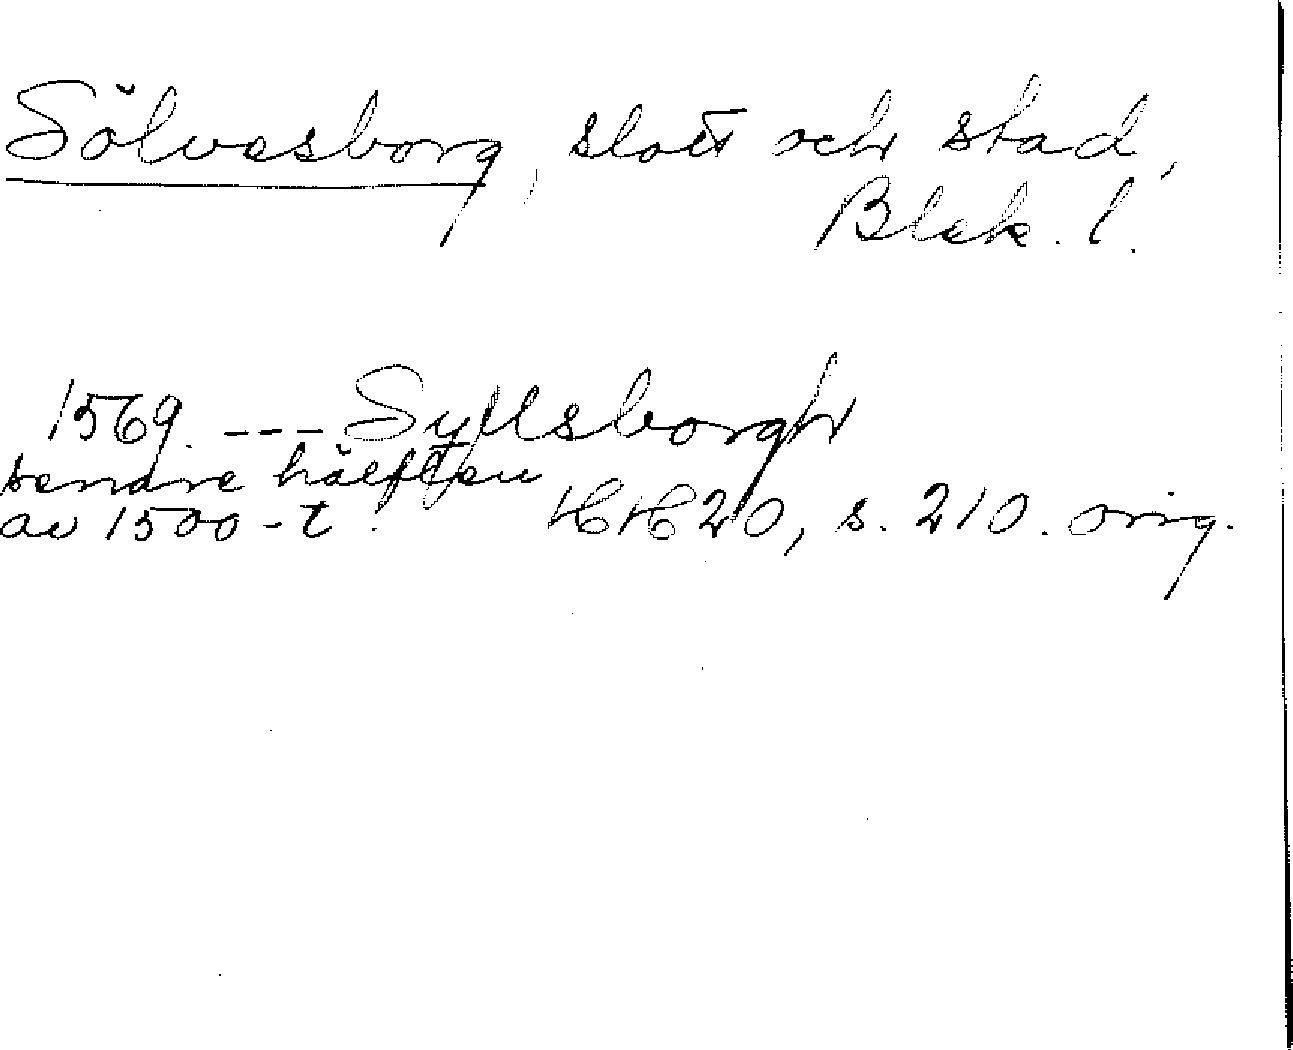 Sölvesborg, slott och stad,
Blek. l.
1569. --- Syllsborgh
senare hälften
av 1500-t. HH 20, s. 210. orig.